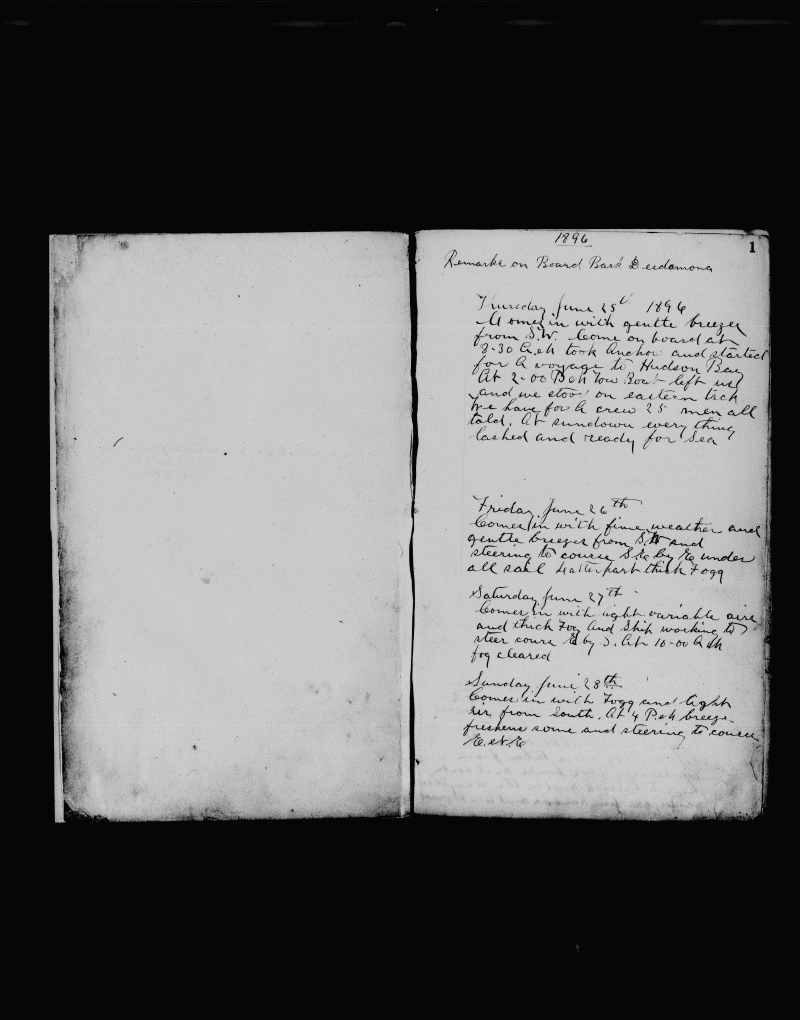 1896
1
Remarks on Board Bark Desdamona
Thursday June 25th 1896
Comes in with gentle breezes
from S.W. Come on board at
8-30 A.M took Anchor and started
for A voyage to Hudson Bay
At 2-00 P.M Tow Boat left us
and we stood on eastern tack
We have for A crew 25 men all
told. At sundown every thing
lashed and ready for Sea
Friday June 26th
Comes in with fine weather and
gentle breezes from S.W and
steering to course S.E by E under
all sail Latter part thick Fogg
Saturday June 27th
Comes in with light variable airs
and thick Fog And Ship working to
steer course E by S. At 10-00 A.M
fog cleared
Sunday June 28th
Comes in with Fogg and light
air from South. At 4 P.M breeze
freshens some and steering to course
E.N.E